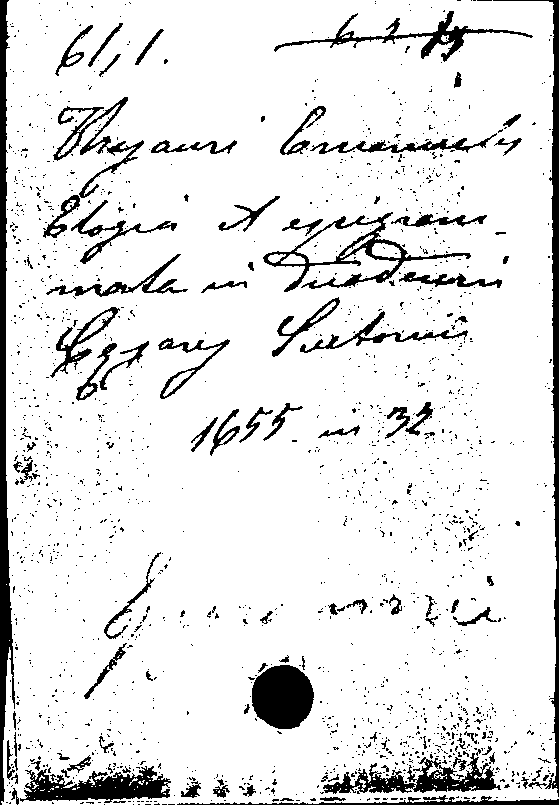 61,1. 6.2.
Thesauri Emanuelis
Elogia et epigram-
mata in duodecim
Cæsares Suetonii
1655 in 32